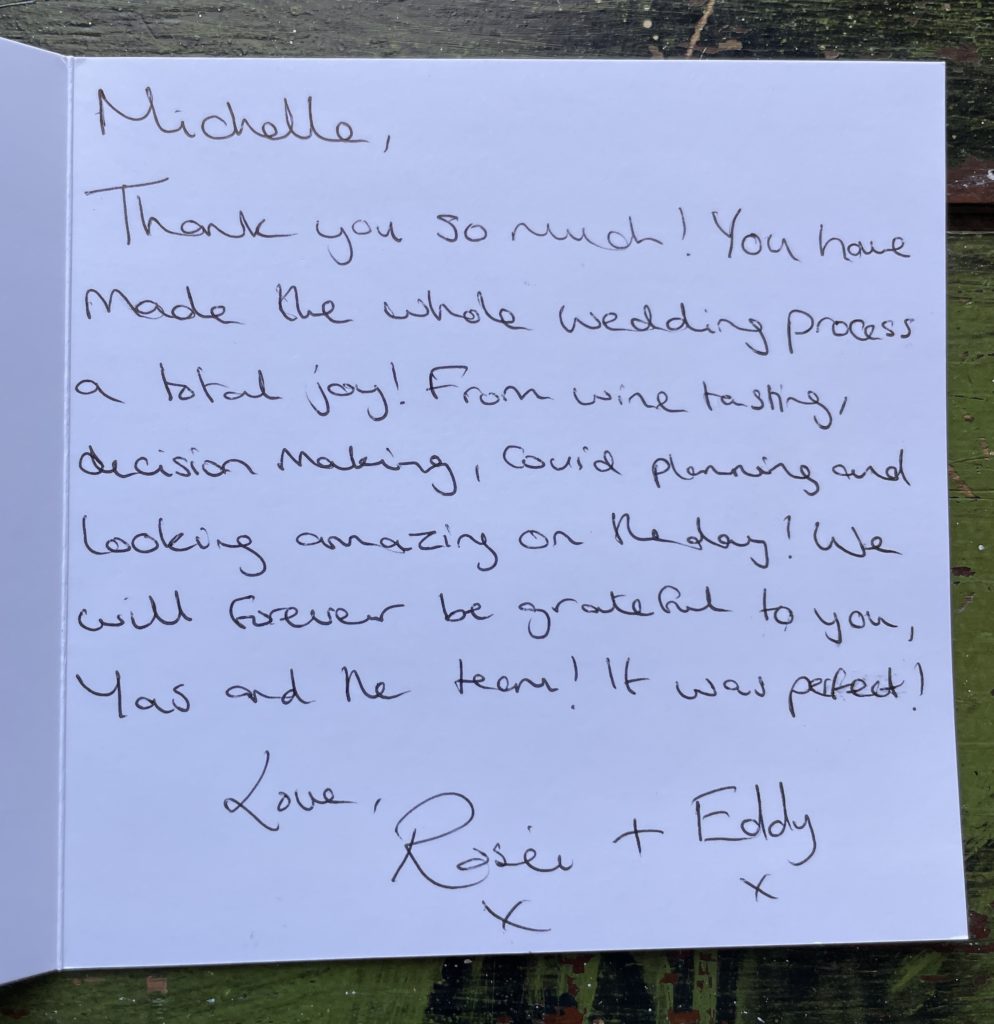 Michelle,
Thank you so much! You have
made the whole wedding process
a total joy! From wine tasting,
decision making, Covid planning and
looking amazing on the day! We
will forever be grateful to you,
Yas and the team! It was perfect!
Love,
Rosie + Eddy
x x